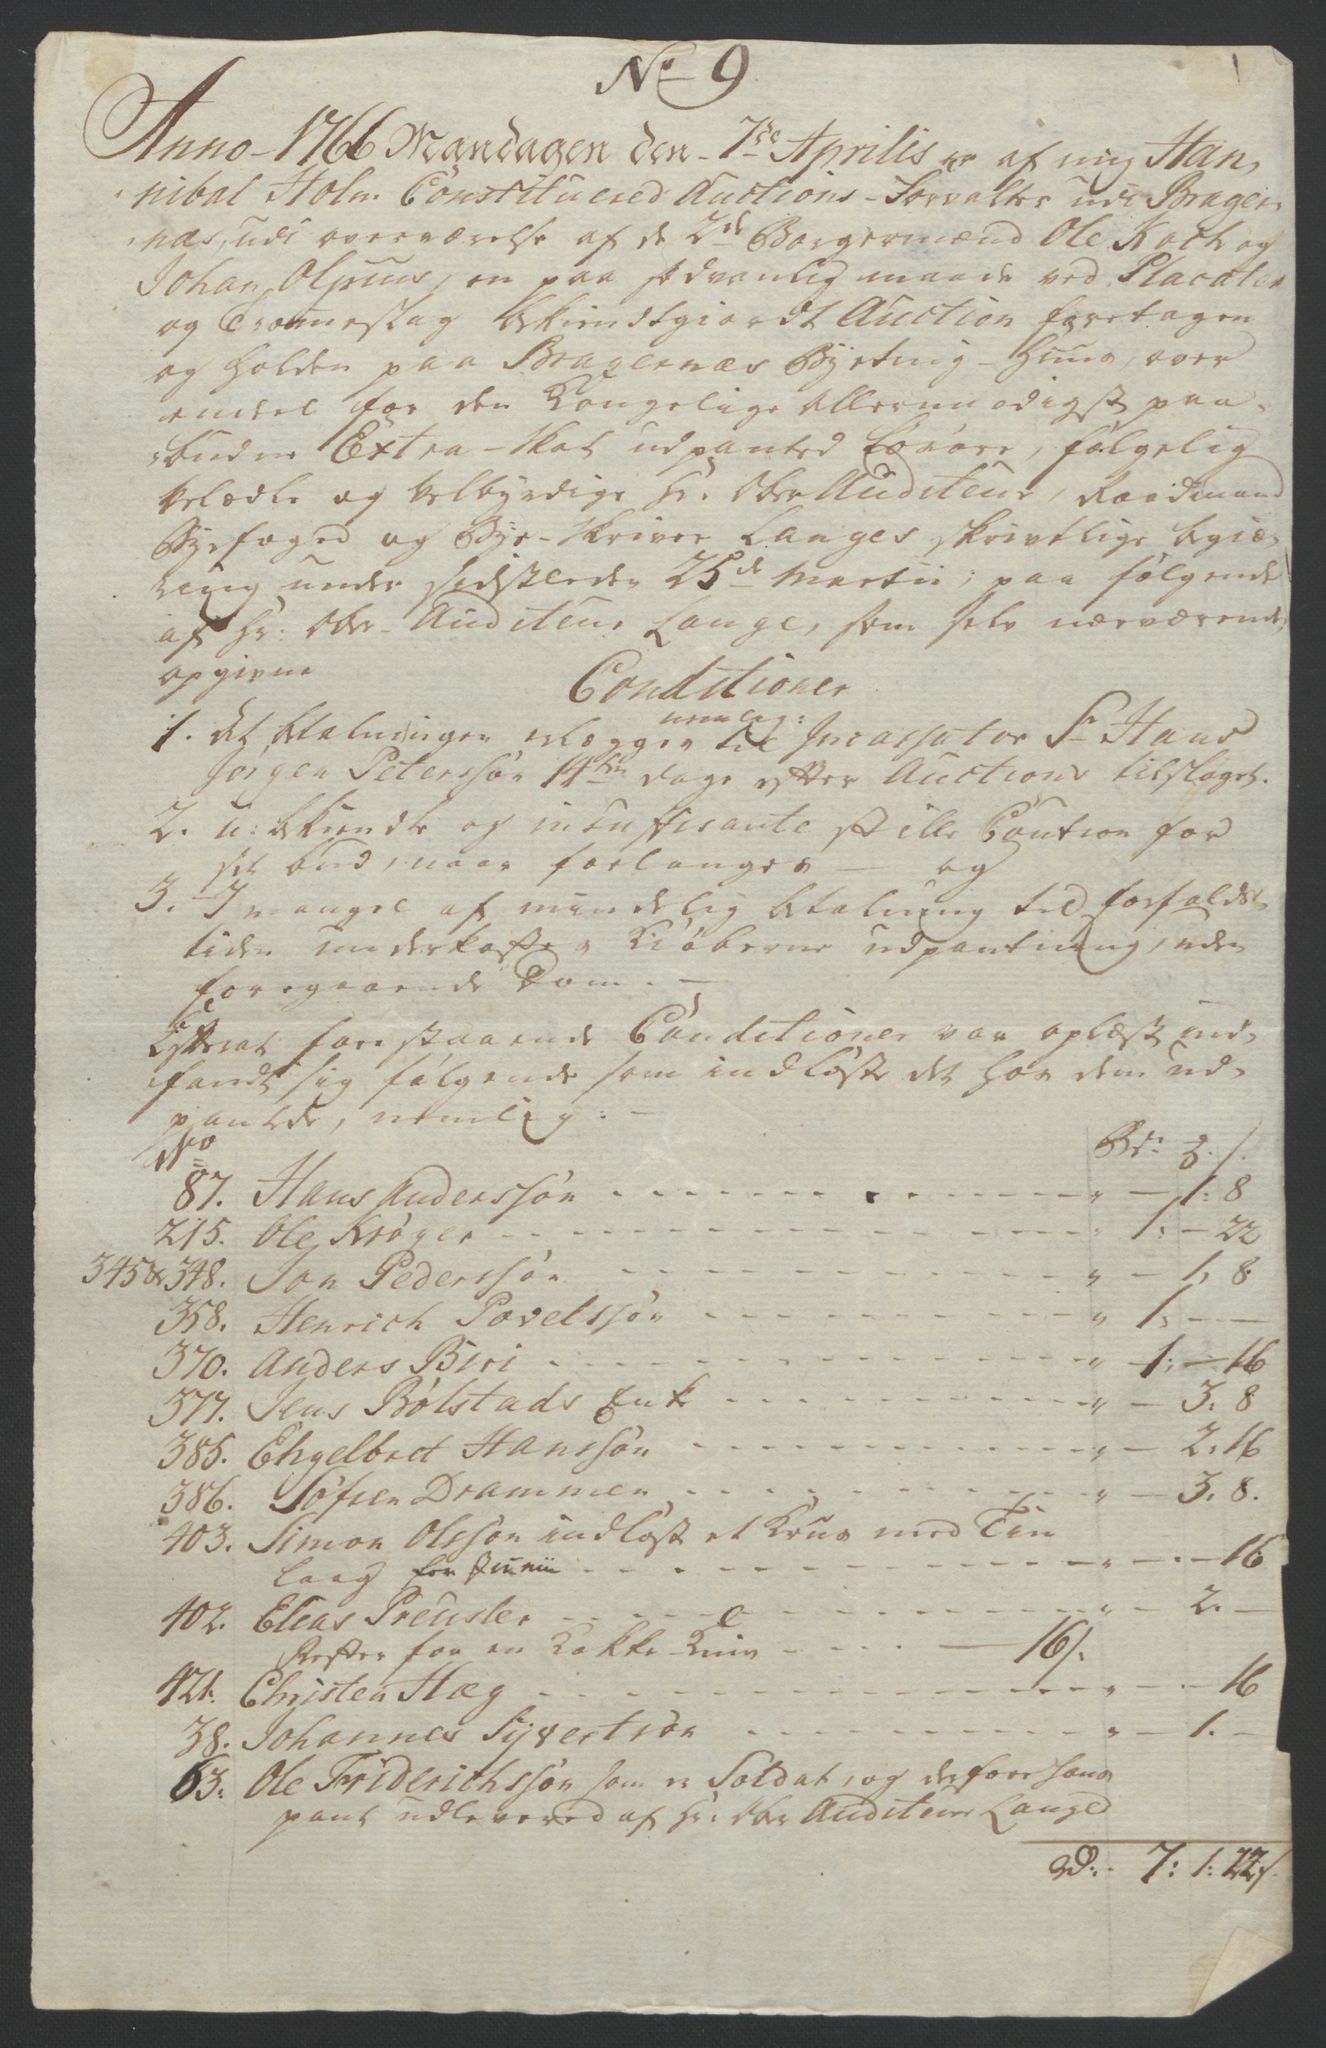 No 9
Anno 1766 Mandagen den 7de Aprilis er af mig Han,
nibal Holm Constitueret Auctions-Forvalter udi Bragernæs,
udi overværelse af de 2de Borgermænd Ole Koch og
Johan Olpius, en paa sædvanlig maade ved Placater
og Trommeslag bekiendtgiordt Auction foretagen
og holden paa Bragernæs Byeting-Huus, over
endeel for den Kongelige allernaadigst paa-
budne Extra-Skat udpantede Løsøre, følgelig
velædle og velbyrdige Hr: Ober Auditeur, Raadmand
Byefoged og Bye-Skriver Langes skrivtlige begiæ-
ring under sidstleden 25de Martii; paa følgende
af Hr: Ober-Auditeur Lange, som selv nærværende,
opgivne
Conditioner
nemlig:
1. at betalningen erlægges til Incassator Sr Hans
Jørgen Peterssøn 14ten dage efter Auctions tilslaget.
2. u-bekiendte og insufficante stille Caution for
sit bud, naar forlanges — og
3. I mangel af mindelig betalning til forfalds-
tiden underkastes Kiøberne udpantning, uden
foregaaende Dom. —
Efterat forestaaende Conditioner var oplæst ind-
fandt sig følgende som indløste det hos dem ud-
pantede, nemlig: —
No Rd: ʒ. s.
87. Hans Anderssøn - - - " — 1: 8
215. Ole Krøger - - - " 1: — 22
345 & 348. Jon Pederssøn - - - " — 1. 8
358. Henrich Povelssøn - - - " 1: — —
370. Anders Biri - - - " 1: — 16
377. Jens Bølstads Enke - - - " — 3. 8
385. Engelbret Hanssøn - - - " — 2. 16
386. Søfren Drammen - - - " — 3. 8.
403. Simon Olssøn indløst et Kruus med Tin
Laag for - - - " — . — 16
402. Elias Preusler - - - " — 2. —
Rester for en Kakke-Kniv - - - — 16 s.
421. Christen Hæg - - - " — . — 16
38. Johannes Syvertsøn - - - " — 1. —
63. Ole Friderichssøn som er Soldat, og derfore hans
pant udleveret af Hr: Ober Auditeur Lange
Rd: 7: 1: 22 s.